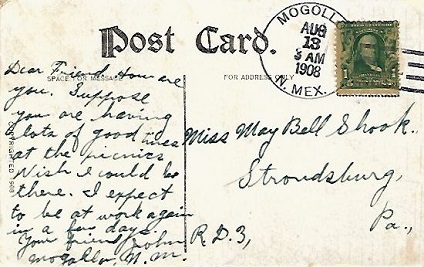 Post Card.
SPACE FOR MESSAGE
FOR ADDRESS ONLY
MOGOLL
AUG
13
AM
1908
N. MEX.
1
Dear Friend, How are
you. Suppose
you are having
lots of good times
at the picnics
Wish I could be
there. I expect
to be at work again
in a few days.
Your friend John
Mogollon, N. M.
Miss May Bell Shook.
Stroudsburg,
Pa.,
R.D. 3,